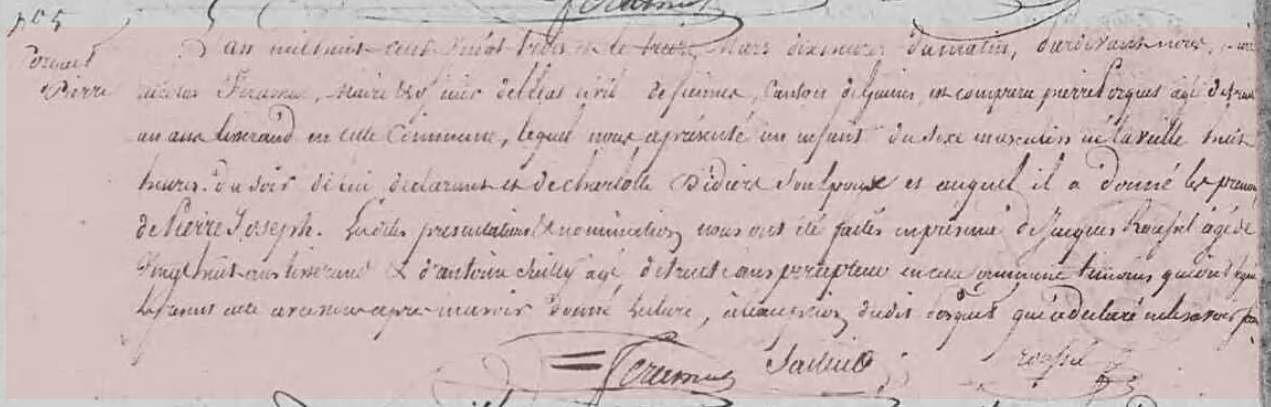 n° 5
L'an mil huit cent vingt trois & le treize Mars dix heures du matin, pardevant nous,
forquet
Pierre
nicolas Feramus, Maire & officier de l'état civil de fiennes, Canton de Guines, est comparu pierre forquet agé de trente
un ans tisserand en cette Commune, lequel nous a présenté un enfant du sexe masculin né la veille huit
heures du soir de lui declarant et de charlotte Didier son Epouse et auquel il a donné les prenoms
de Pierre Joseph. Lesdites presentation & nomination nous ont été faites en présence de Jacques Roussel agé de
Vingt huit ans tisserand & d'antoine agé de trente ans percepteur en cette commune temoins qui ont signé
le present acte avec nous après en avoir donné lecture, à l'exception dudit forquet qui a declaré ne le savoir
Feramus roussel